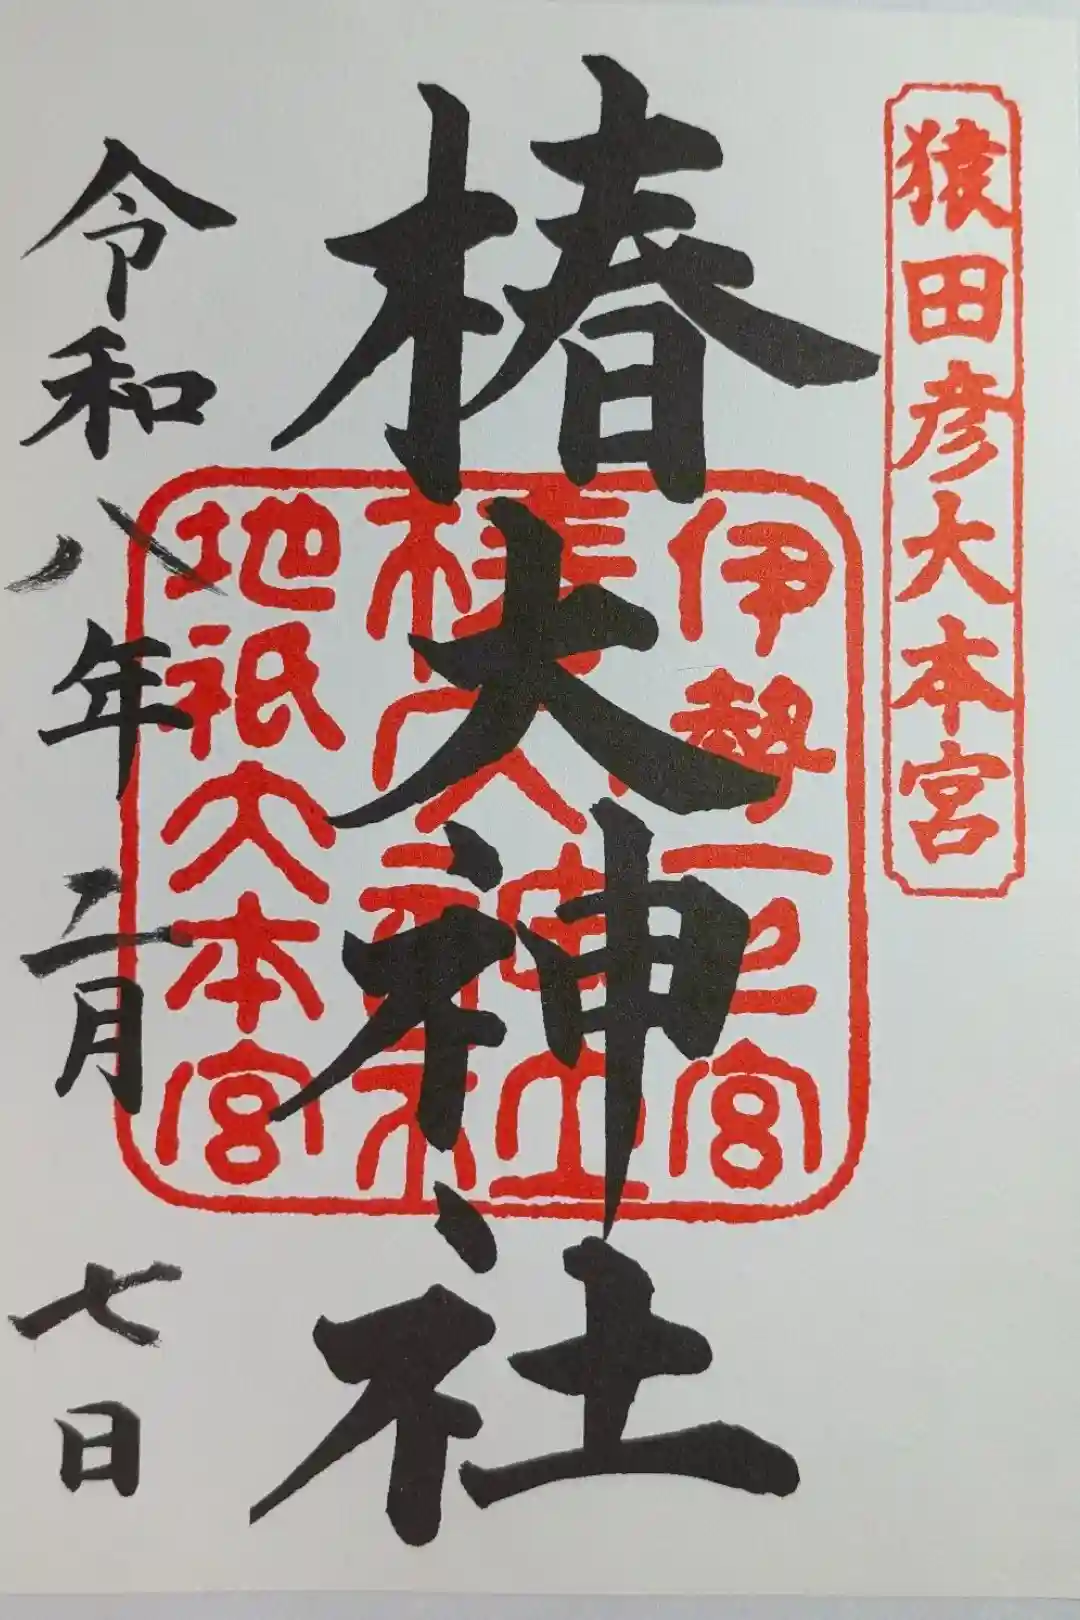 猿田彦大本宮
椿大神社
伊勢一之宮
椿大神社
地祇大本宮
令和八年二月七日